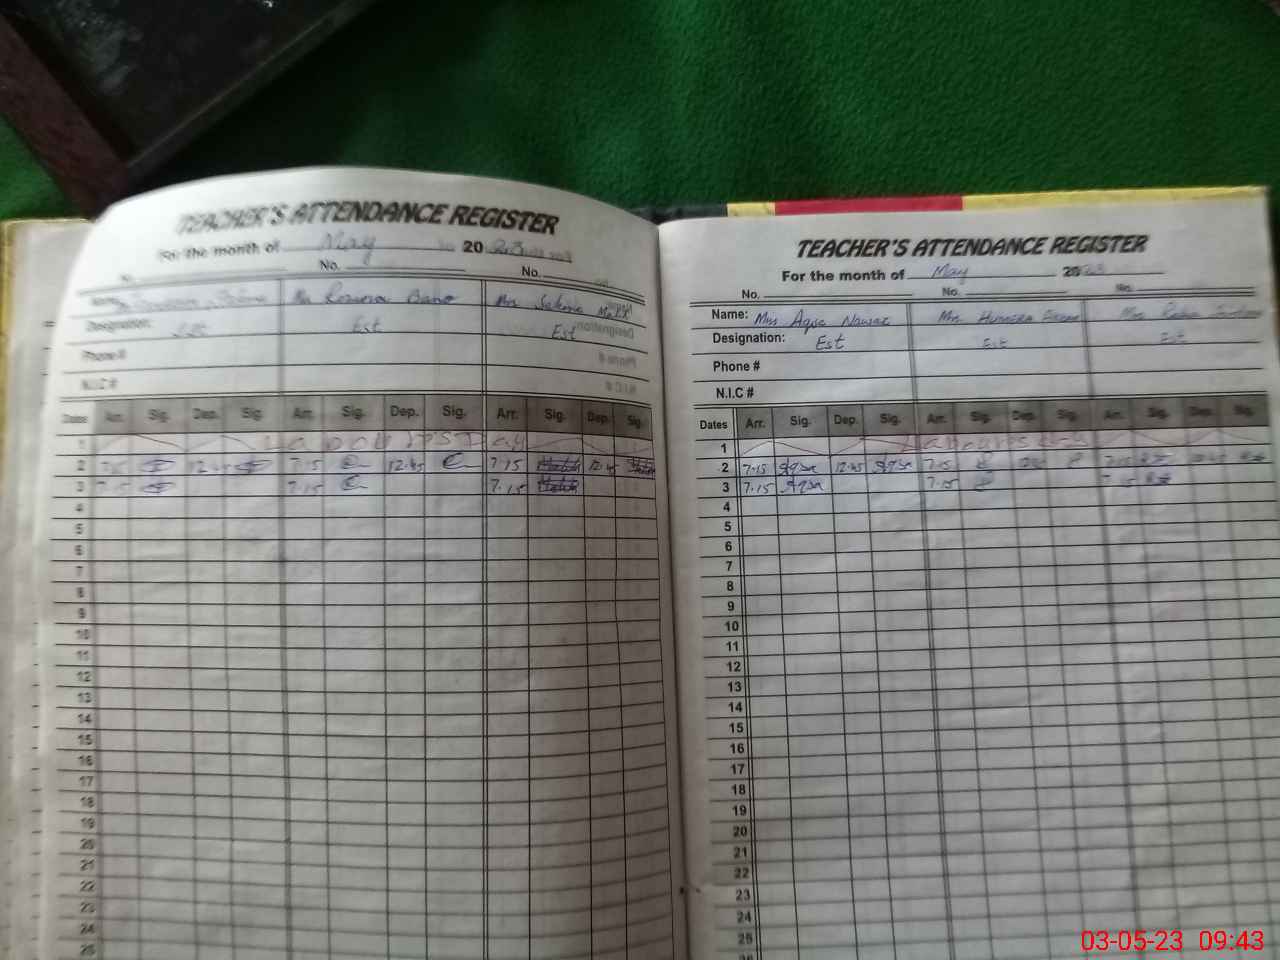 TEACHER'S ATTENDANCE REGISTER
For the month of May 2023
No. No.
Name: Ms Romana Bano Mrs Sakina Malik
Designation: Est Est Est
Phone #
N.I.C #
Dates Arr. Sig. Dep. Sig. Arr. Sig. Dep. Sig. Arr. Sig. Dep. Sig.
1 Labour's Day
2 7.15 12.45 7.15 12.45 7.15 12.45
3 7.15 7.15 7.15
4
5
6
7
8
9
10
11
12
13
14
15
16
17
18
19
20
21
22
23
24
25
TEACHER'S ATTENDANCE REGISTER
For the month of May 2023
No. No. No.
Name: Mrs Aqsa Nawaz Mrs Humera Mrs Rabia
Designation: Est Est Est
Phone #
N.I.C #
Dates Arr. Sig. Dep. Sig. Arr. Sig. Dep. Sig. Arr. Sig. Dep. Sig.
1 Labour's Day
2 7.15 Aqsa 12.45 Aqsa 7.15 7.15 12.45
3 7.15 Aqsa 7.15 7.15
4
5
6
7
8
9
10
11
12
13
14
15
16
17
18
19
20
21
22
23
24
25
03-05-23 09:43